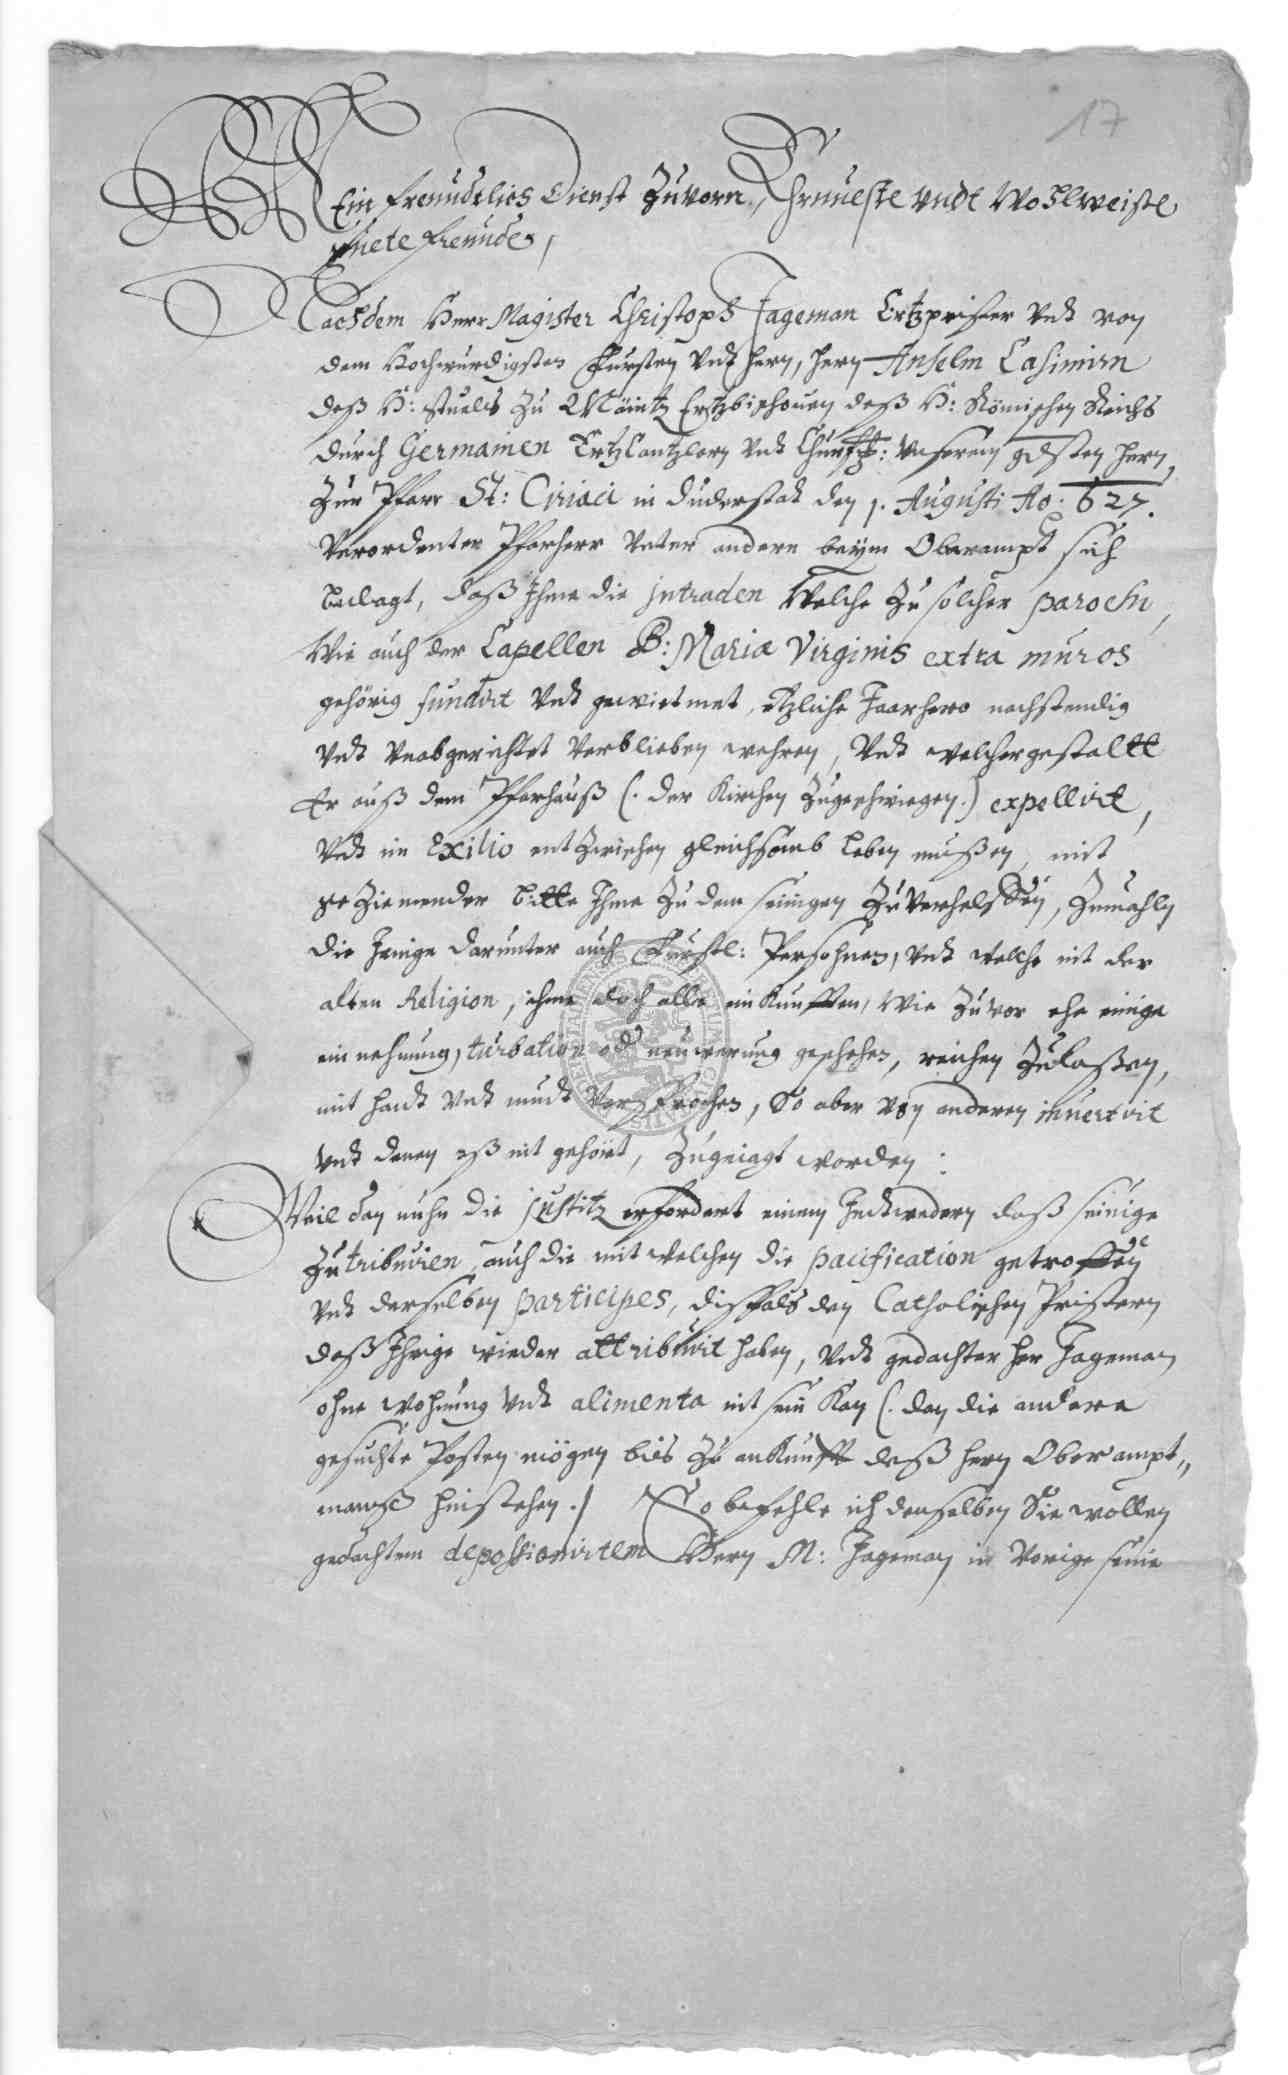 17
Mein freundtlichs Dienst zuvorn, Ehrnueste undt Wohlweiste
guete freunde,
Nachdem Herr Magister Christoph Jageman Ertzpriester undt von
dem Hochwurdigsten Fursten undt hern, hern Anselm Casimirn
deß H: stuels zu Mäintz Ertzbischouen deß H: Römischen Reichs
durch Germanien ErtzCantzlern undt Churf: unserem gdsten hern,
zur Pfarr St: Ciriaci in duderstadt den 1. Augusti Ao. 627.
verordenter Pfarherr unter andern beÿm Oberampt sich
beclagt, daß Ihme die jntraden welche zu solcher parochi,
wie auch der Capellen B: Mariæ Virginis extra muros
gehörig fundirt undt gewietmet, etzliche Jaarhero nachstendig
undt unabgerichtet verblieben wehren, undt welchergestaltt
Er auß dem Pfarhauß (. der Kirchen zugeschwiegen.) expellirt,
undt im Exilio entzwischen gleichsamb leben mußen, mit
geziemender bitte Ihme zu dem seinigen zuverhelffen, Zumahln
die Jenige darunter auch Furstl: Persohnen, undt welche nit der
alten Religion, ihme doch alle einKunfften, wie zuvor ehe einige
einnehmung, turbation od neuwerung geschehen, reichen zulaßen,
mit handt undt mundt versprochen, So aber von anderen invertirt
undt denen eß nit gehöret, zugeiagt worden:
Weil dan nuhn die justitz erfordert einem Jedtwedern daß seinige
zu tribuiren, auch die mit welchen die pacification getroffen
undt derselben participes, dißfals den Catholischen Pristern
daß Ihrige wieder attribuirt haben, undt gedachter her Jageman
ohne wohnung undt alimenta nit sein Kan (. dan die andere
gesuchte Posten mögen bies zu anKunfft deß hern Oberampt„
manß hinstehen .) So befehle ich denselben Sie wollen
gedachtem depossionirtem Hern M: Jageman in vorige seine